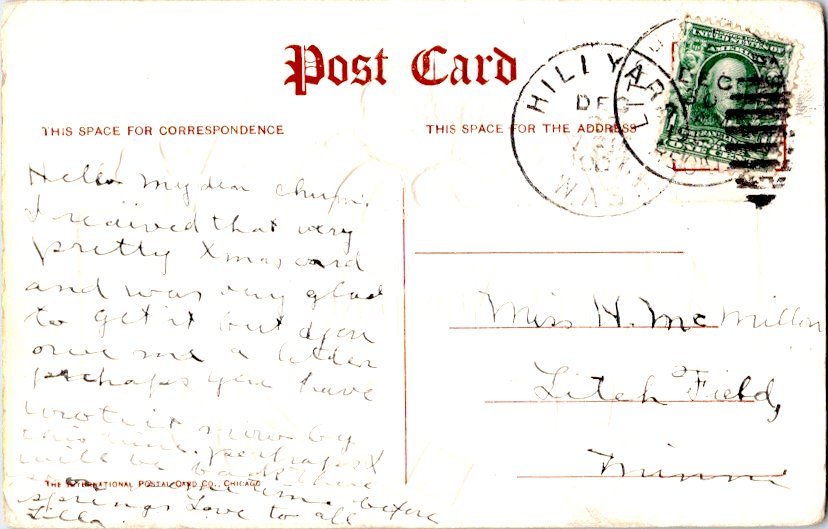 Post Card
THIS SPACE FOR CORRESPONDENCE
THIS SPACE FOR THE ADDRESS
HILLYARD
DEC
UNITED STATES OF AMERICA
Hello my dear chum.
I reciived that very
pretty Xmas card
and was very glad
to get it but you
owe me a letter
perhaps you have
wrote it now by
this time. perhaps I
will be back there
some time before
springs Love to all
Lilla.
Miss H. McMillon
Litch Field,
Minn
THE INTERNATIONAL POSTAL CARD CO., CHICAGO